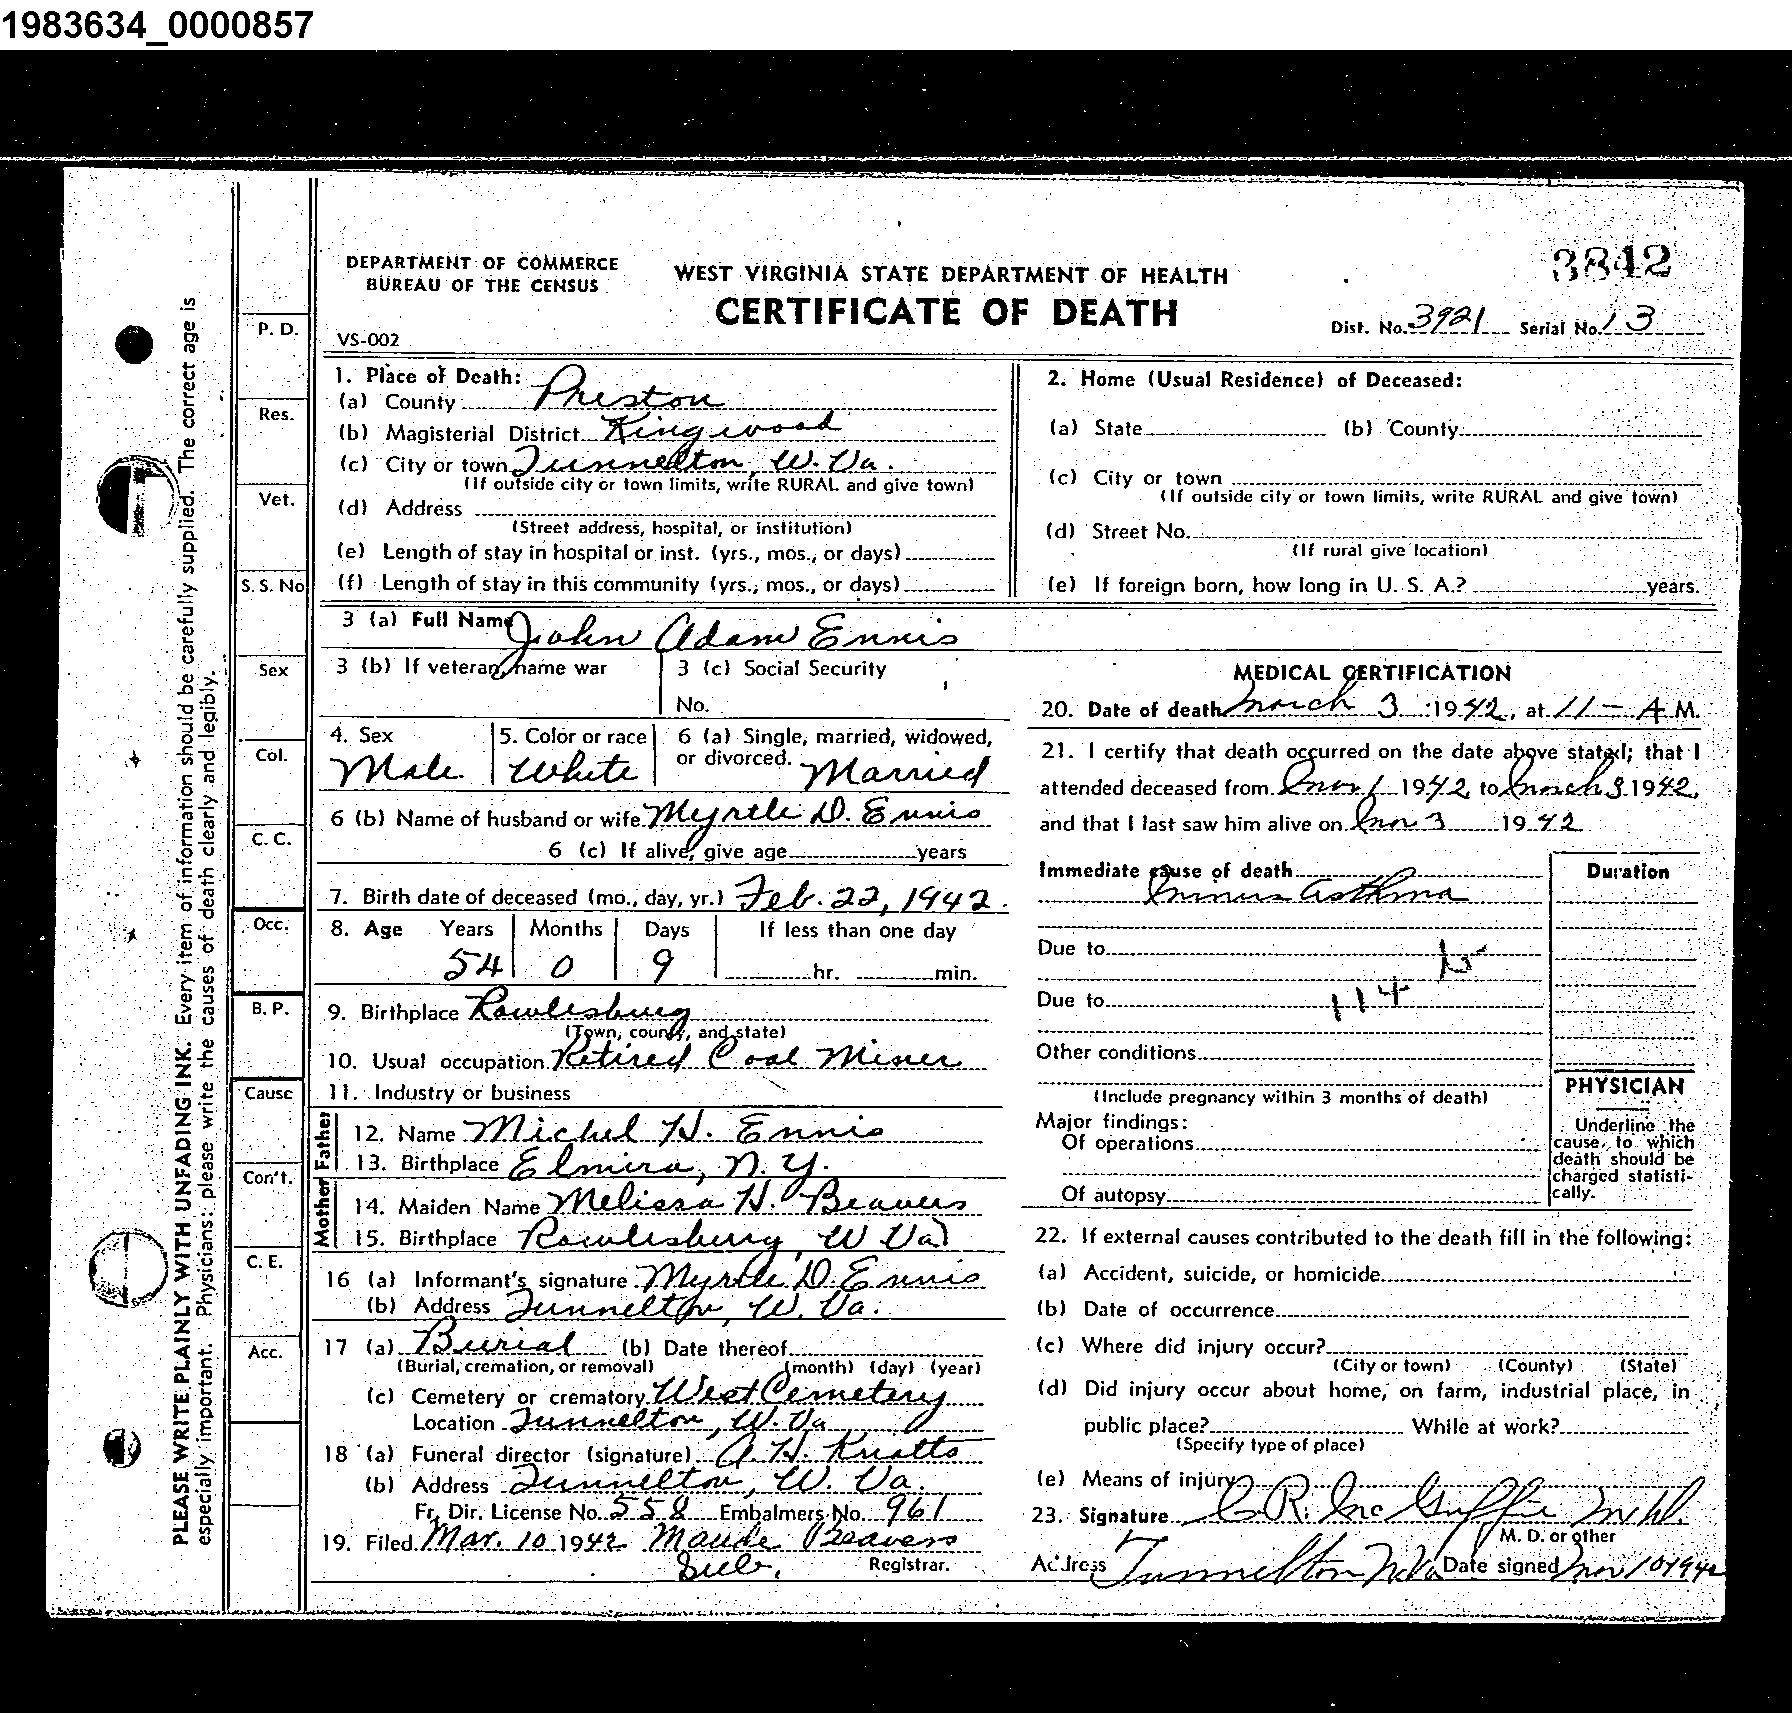 1983634_0000857
PLEASE WRITE PLAINLY WITH UNFADING INK. Every item of information should be carefully supplied. The correct age is
especially important. Physicians: please write the causes of death clearly and legibly.
P. D.
Res.
Vet.
S. S. No
Sex
Col.
C. C.
Occ.
B. P.
Cause
Con't.
C. E.
Acc.
DEPARTMENT OF COMMERCE
BUREAU OF THE CENSUS
VS-002
WEST VIRGINIA STATE DEPARTMENT OF HEALTH
CERTIFICATE OF DEATH
3842
Dist. No. 3921 Serial No. 13
1. Place of Death:
(a) County Preston
(b) Magisterial District Kingwood
(c) City or town Tunnelton, W. Va.
(If outside city or town limits, write RURAL and give town)
(d) Address
(Street address, hospital, or institution)
(e) Length of stay in hospital or inst. (yrs., mos., or days)
(f) Length of stay in this community (yrs., mos., or days)
2. Home (Usual Residence) of Deceased:
(a) State (b) County
(c) City or town
(If outside city or town limits, write RURAL and give town)
(d) Street No.
(If rural give location)
(e) If foreign born, how long in U. S. A.? years.
3 (a) Full Name John Adam Ennis
3 (b) If veteran, name war
3 (c) Social Security
No.
4. Sex
Male
5. Color or race
White
6 (a) Single, married, widowed,
or divorced. Married
6 (b) Name of husband or wife Myrtle D. Ennis
6 (c) If alive, give age years
7. Birth date of deceased (mo., day, yr.) Feb. 22, 1942.
8. Age Years Months Days If less than one day
54 0 9 hr. min.
9. Birthplace Rowlesburg
(Town, county, and state)
10. Usual occupation Retired Coal Miner
11. Industry or business
Father
12. Name Michel H. Ennis
13. Birthplace Elmira, N. Y.
Mother
14. Maiden Name Melissa H. Beavers
15. Birthplace Rowlesburg, W Va
16 (a) Informant's signature Myrtle D. Ennis
(b) Address Tunnelton, W. Va.
17 (a) Burial (b) Date thereof
(Burial, cremation, or removal) (month) (day) (year)
(c) Cemetery or crematory West Cemetery
Location Tunnelton, W. Va
18 (a) Funeral director (signature) A. H. Knotts
(b) Address Tunnelton, W. Va.
Fr. Dir. License No. 558 Embalmers No. 961
19. Filed Mar. 10 1942 Maude Beavers
Sub. Registrar.
MEDICAL CERTIFICATION
20. Date of death March 3 1942, at 11 - A M.
21. I certify that death occurred on the date above stated; that I
attended deceased from Mar 1 1942 to March 3 1942,
and that I last saw him alive on Mar 3 1942
Immediate cause of death
asthma
Duration
Due to
Due to 114
Other conditions
(Include pregnancy within 3 months of death)
Major findings:
Of operations
Of autopsy
PHYSICIAN
Underline the
cause to which
death should be
charged statisti-
cally.
22. If external causes contributed to the death fill in the following:
(a) Accident, suicide, or homicide
(b) Date of occurrence
(c) Where did injury occur?
(City or town) (County) (State)
(d) Did injury occur about home, on farm, industrial place, in
public place? While at work?
(Specify type of place)
(e) Means of injury
23. Signature C. R. McGuffie M.D.
M. D. or other
Address Tunnelton W Va Date signed Mar 10 1942